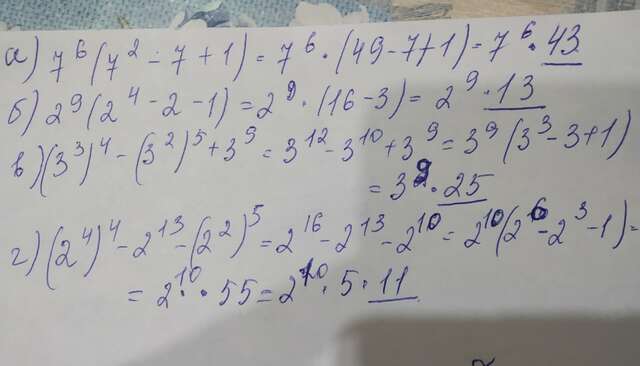 а) 7⁶(7² - 7 + 1) = 7⁶ · (49 - 7 + 1) = 7⁶ · 43
б) 2⁹(2⁴ - 2 - 1) = 2⁹ · (16 - 3) = 2⁹ · 13
в) (3³)⁴ - (3²)⁵ + 3⁹ = 3¹² - 3¹⁰ + 3⁹ = 3⁹(3³ - 3 + 1)
= 3⁹ · 25
г) (2⁴)⁴ - 2¹³ - (2²)⁵ = 2¹⁶ - 2¹³ - 2¹⁰ = 2¹⁰(2⁶ - 2³ - 1) =
= 2¹⁰ · 55 = 2¹⁰ · 5 · 11